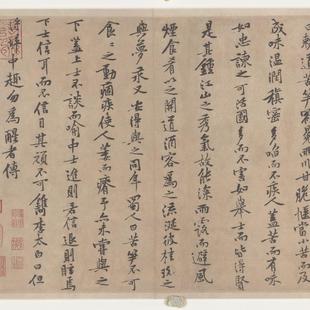 道苦笋冠冕兩川甘脆愜當小苦而及
成味溫潤縝密多啗而不疾人蓋苦而有味
如忠諫之可活國多而不害如舉士而皆得賢
是其鍾江山之秀氣故能深雨露而避風
煙食肴以之開道酒客為之流涎彼桂玫之
與夢汞又安得與之同年蜀人曰苦笋不可
食〻之動痼疾使人萎而瘠予亦未嘗與之
下蓋上士不談而喻中士進則若信退則眩焉
下士信耳而不信目其頑不可鐫李太白曰但
得醉中趣勿為醒者傳